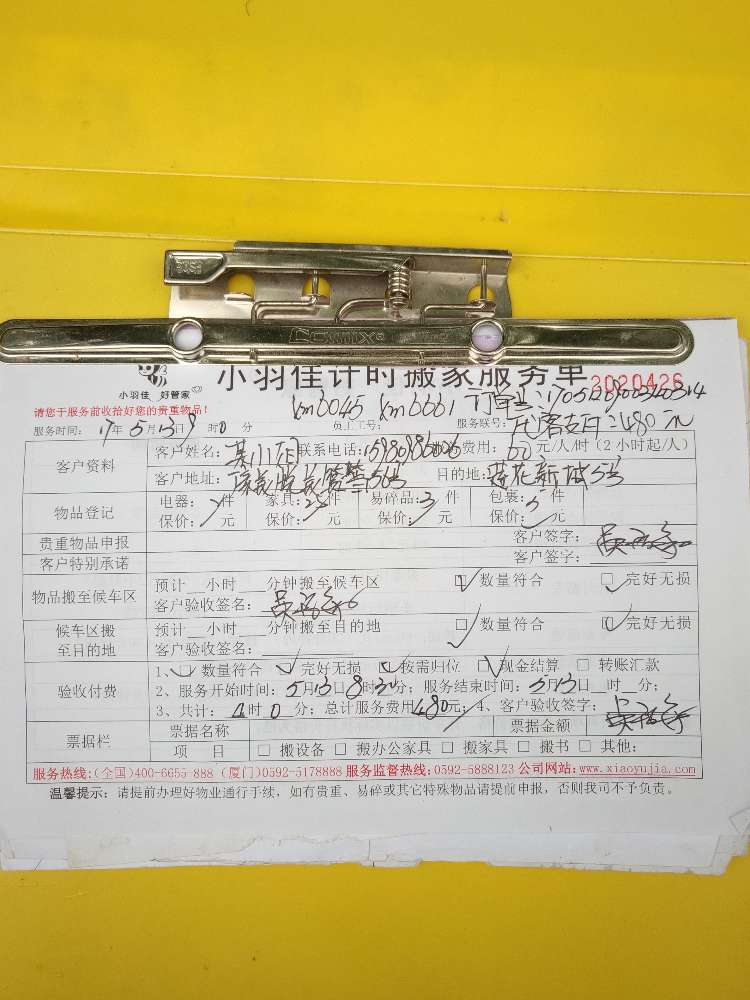 COMIX
小羽佳计时搬家服务单 2020426
小羽佳 好管家
请您于服务前收拾好您的贵重物品!
km6045 km6661 订单号:
代客支付:480元
服务时间: 17年5月13日8时0分 员工工号: 服务联号:
客户资料 客户姓名: 联系电话: 费用: 60元/人/时(2小时起/人)
客户地址: 目的地:莲花新城5号
物品登记 电器: 件 家具:25件 易碎品:3件 包裹: 件
保价: 元 保价: 元 保价: 元 保价: 元
贵重物品申报 客户签字:
客户特别承诺 客户签字:
物品搬至候车区 预计 小时 分钟搬至候车区 数量符合 完好无损
客户验收签名:
候车区搬至目的地 预计 小时 分钟搬至目的地 数量符合 完好无损
客户验收签名:
验收付费 1、 数量符合 完好无损 按需归位 现金结算 转账汇款
2、服务开始时间:5月13日8时 分; 服务结束时间:5月13日 时 分;
3、共计: 时0分; 总计服务费用480元; 4、客户验收签字:
票据栏 票据名称 票据金额
项 目 搬设备 搬办公家具 搬家具 搬书 其他:
服务热线:(全国)400-6655-888 (厦门)0592-5178888 服务监督热线:0592-5888123 公司网站:www.xiaoyujia.com
温馨提示: 请提前办理好物业通行手续, 如有贵重、易碎或其它特殊物品请提前申报, 否则我司不予负责。